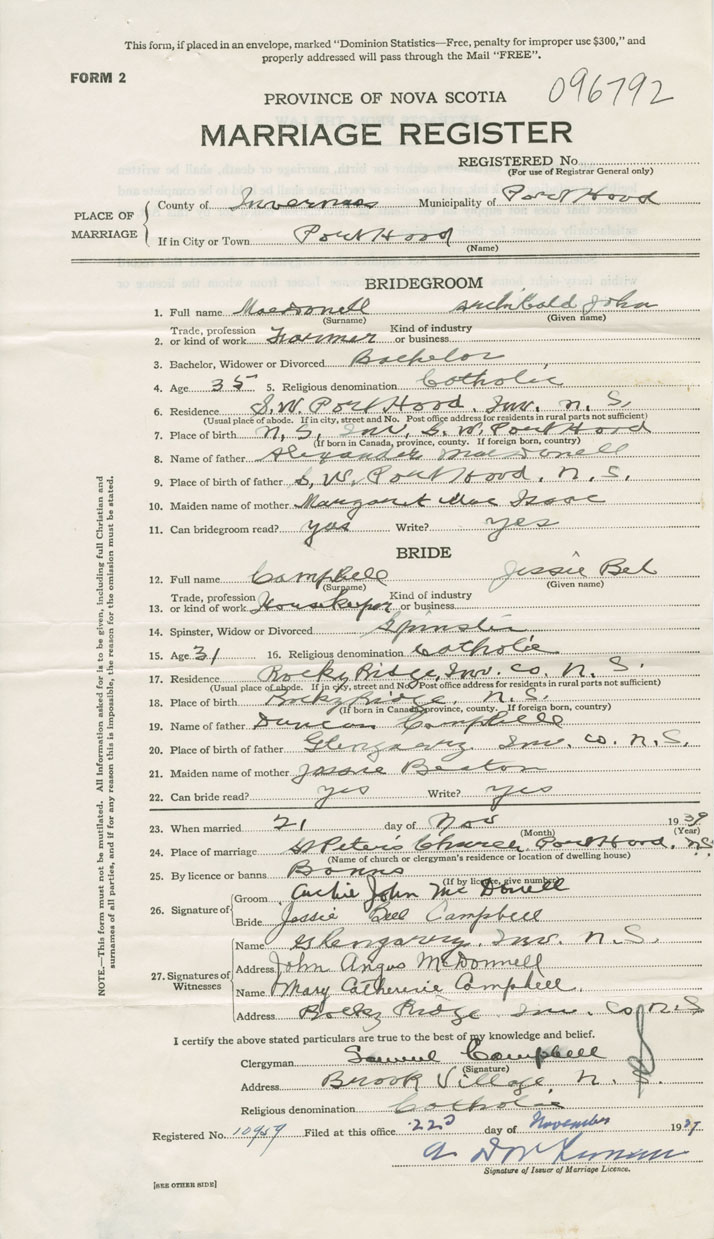 This form, if placed in an envelope, marked “Dominion Statistics—Free, penalty for improper use $300,” and
properly addressed will pass through the Mail “FREE”.
FORM 2
096792
PROVINCE OF NOVA SCOTIA
MARRIAGE REGISTER
REGISTERED No.
(For use of Registrar General only)
PLACE OF MARRIAGE
County of Inverness Municipality of Port Hood
If in City or Town Port Hood
(Name)
BRIDEGROOM
1. Full name MacDonell Archibald John
(Surname) (Given name)
Trade, profession Kind of industry
2. or kind of work Farmer or business
3. Bachelor, Widower or Divorced Bachelor
4. Age 35 5. Religious denomination Catholic
6. Residence S. W. Port Hood, Inv. N. S.
(Usual place of abode. If in city, street and No. Post office address for residents in rural parts not sufficient)
7. Place of birth N. S. Inv, S. W. Port Hood
(If born in Canada, province, county. If foreign born, country)
8. Name of father Alexander MacDonell
9. Place of birth of father S. W. Port Hood, N. S.
10. Maiden name of mother Margaret Mac Isaac
11. Can bridegroom read? yes Write? yes
BRIDE
12. Full name Campbell Jessie Bel
(Surname) (Given name)
Trade, profession Kind of industry
13. or kind of work Housekeeper or business
14. Spinster, Widow or Divorced Spinster
15. Age 31 16. Religious denomination Catholic
17. Residence Rocky Ridge, Inv. Co. N. S.
(Usual place of abode. If in city, street and No. Post office address for residents in rural parts not sufficient)
18. Place of birth Rocky Ridge, N. S.
(If born in Canada, province, county. If foreign born, country)
19. Name of father Duncan Campbell
20. Place of birth of father Glengarry Inv. Co. N. S.
21. Maiden name of mother Jessie Beaton
22. Can bride read? yes Write? yes
23. When married 21 day of Nov 1939
(Month) (Year)
24. Place of marriage St Peter's Church Port Hood, N.S.
(Name of church or clergyman's residence or location of dwelling house)
25. By licence or banns Banns
(If by licence, give number)
26. Signature of
Groom Archie John McDonell
Bride Jessie Bell Campbell
27. Signatures of Witnesses
Name Glengarry, Inv. N. S.
Address John Angus McDonnell
Name Mary Catherine Campbell
Address Rocky Ridge Inv. Co N. S
I certify the above stated particulars are true to the best of my knowledge and belief.
Clergyman Samuel Campbell
(Signature)
Address Brook Village, N. S.
Religious denomination Catholic
Registered No. 10959 Filed at this office 22 day of November 19
Signature of Issuer of Marriage Licence.
[SEE OTHER SIDE]
NOTE.—This form must not be mutilated. All Information asked for is to be given, including full Christian and
surnames of all parties, and if for any reason this is impossible, the reason for the omission must be stated.